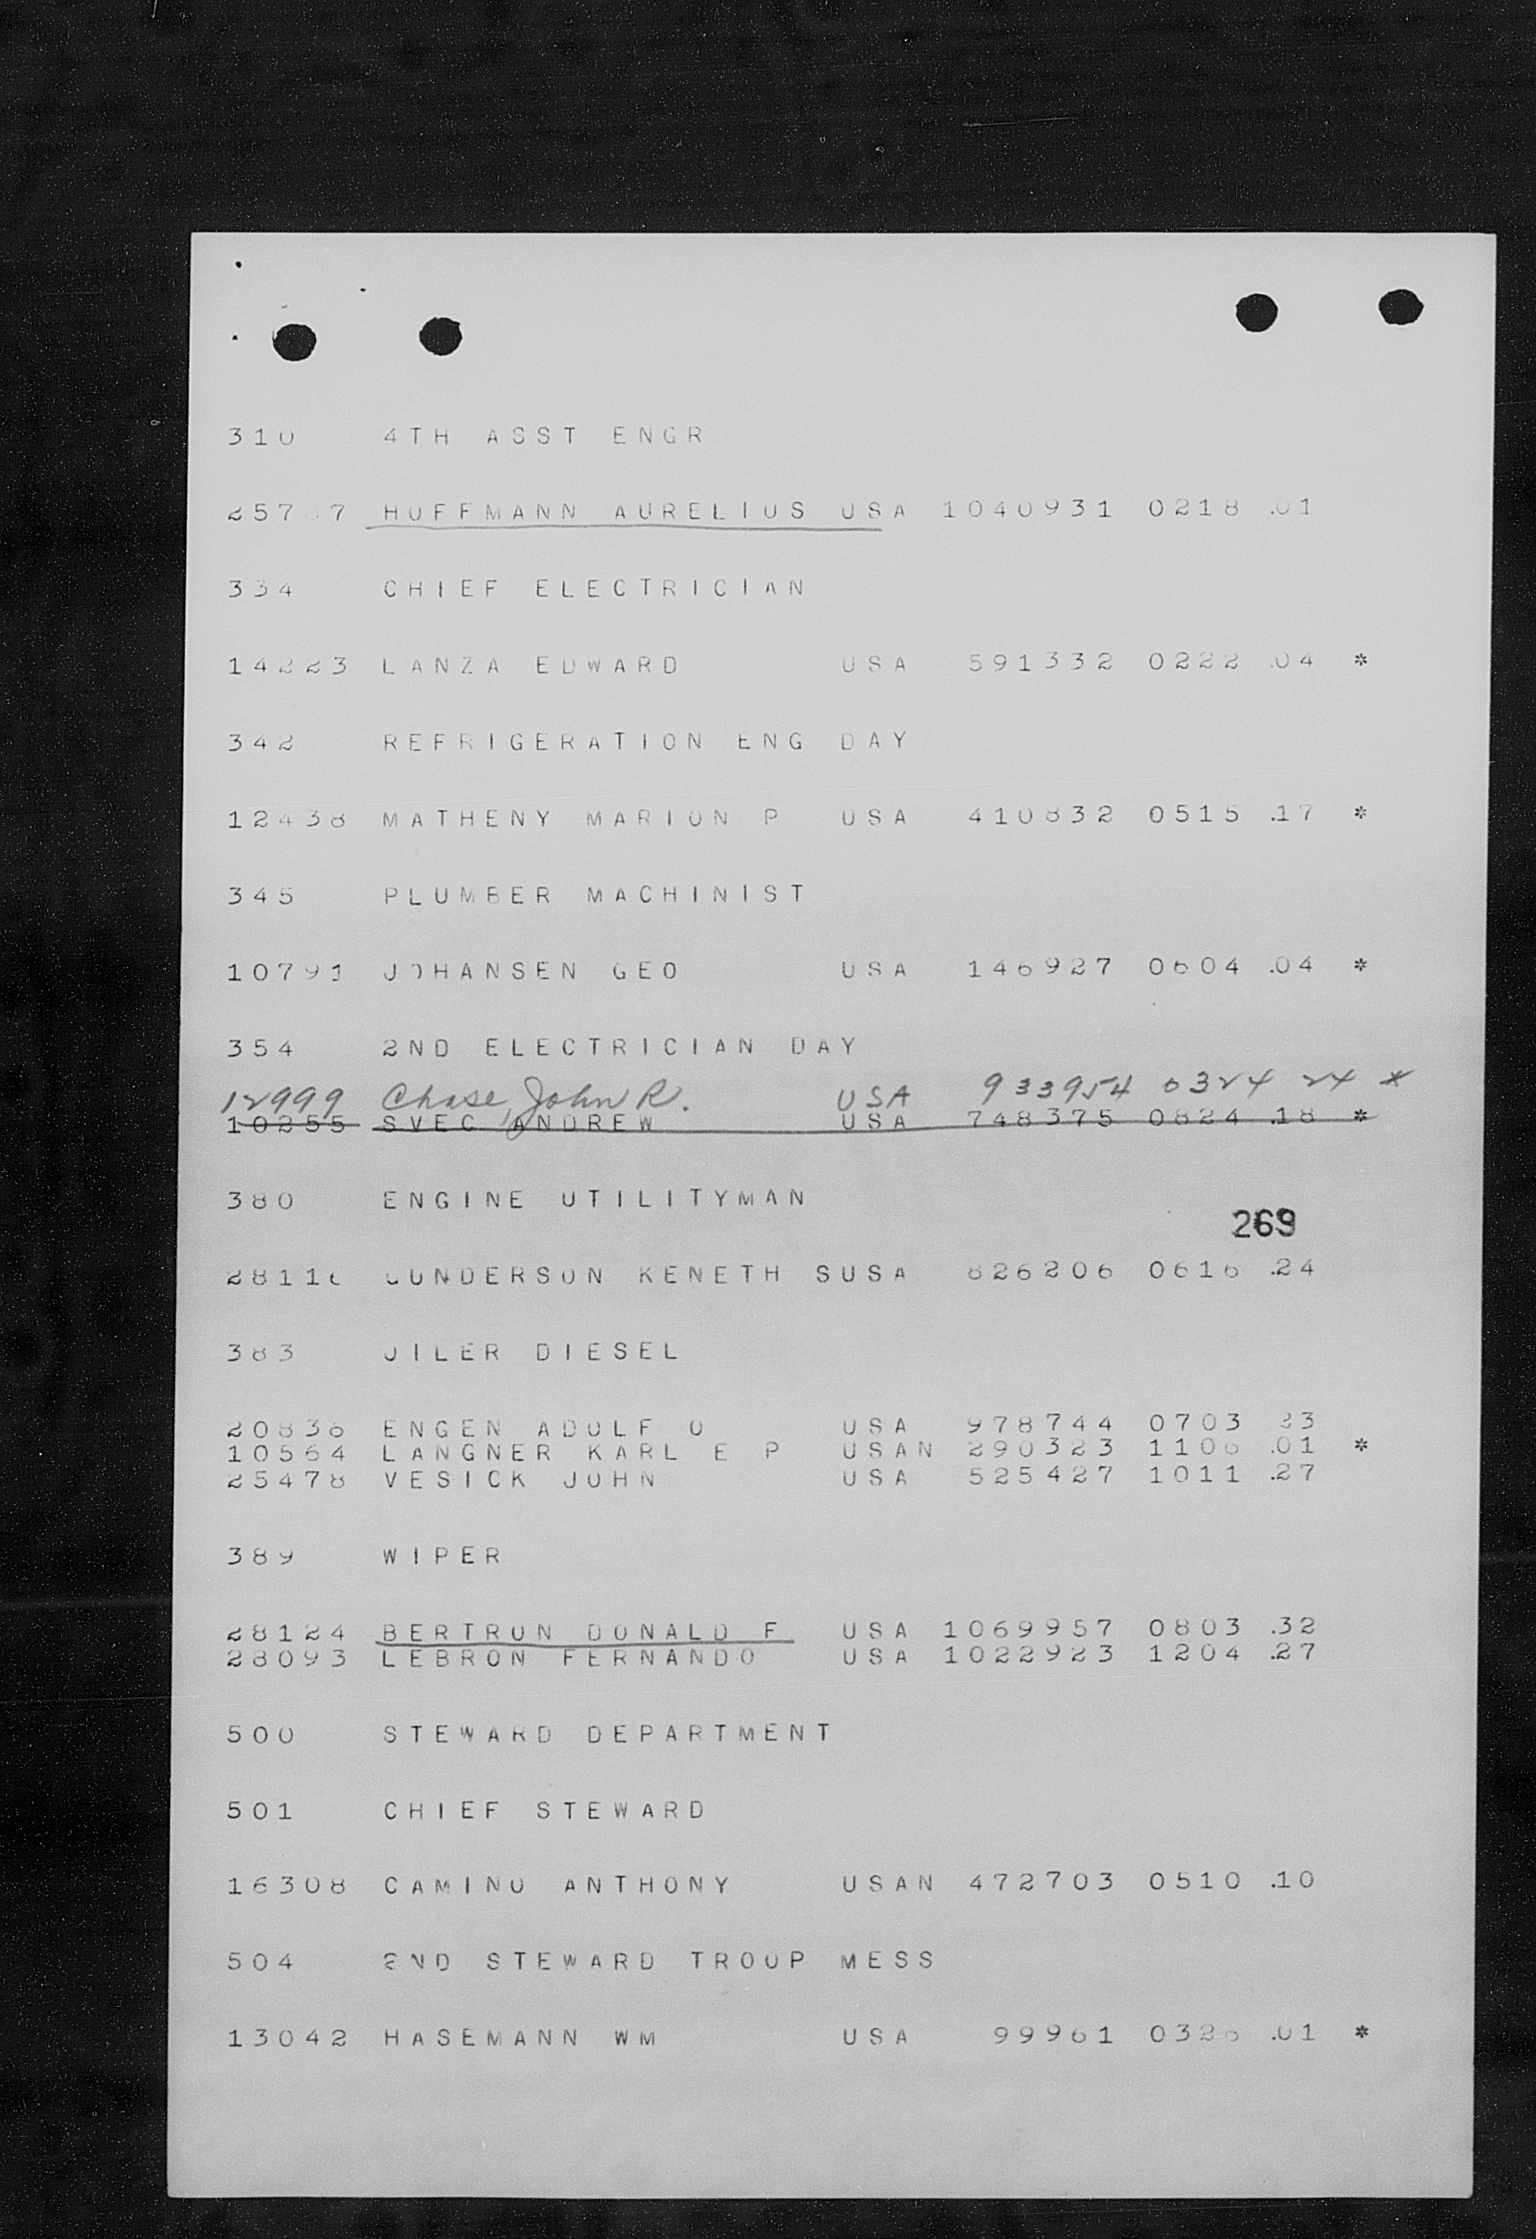 310 4TH ASST ENGR
HOFFMANN AURELIUS USA 1040931 0218 .01
334 CHIEF ELECTRICIAN
14223 LANZA EDWARD USA 591332 0222 .04 *
342 REFRIGERATION ENG DAY
12438 MATHENY MARION P USA 410832 0515 .17 *
345 PLUMBER MACHINIST
10791 JOHANSEN GEO USA 146927 0604 .04 *
354 2ND ELECTRICIAN DAY
12999 Chase, John R. USA 933954 0324 24 *
10255 SVEC ANDREW USA 748375 0824 .18 *
380 ENGINE UTILITYMAN
269
GUNDERSON KENETH SUSA 826206 0616 .24
383 OILER DIESEL
20836 ENGEN ADOLF O USA 978744 0703 23
10564 LANGNER KARL E P USAN 290323 1106 .01 *
25478 VESICK JOHN USA 525427 1011 .27
389 WIPER
28124 BERTRON DONALD F USA 1069957 0803 .32
28093 LEBRON FERNANDO USA 1022923 1204 .27
500 STEWARD DEPARTMENT
501 CHIEF STEWARD
16308 CAMINO ANTHONY USAN 472703 0510 .10
504 2ND STEWARD TROOP MESS
13042 HASEMANN WM USA 99961 0326 .01 *